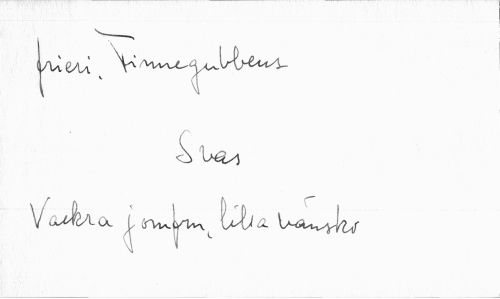 frieri, Finnegubbens
Svas
Vackra jomfru, lilla vänsko